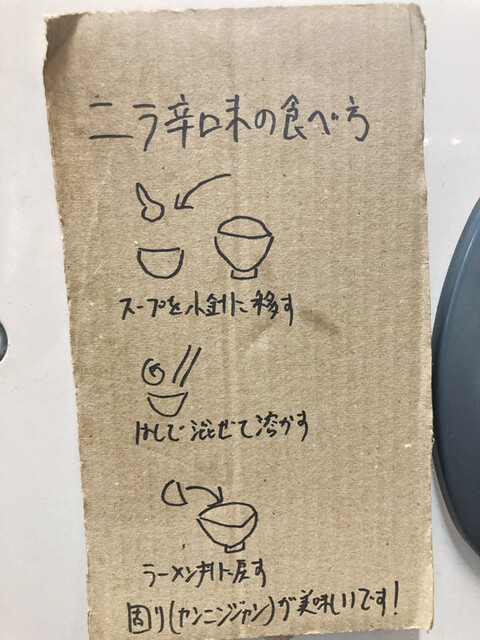 ニラ辛口味の食べ方
スープを小鉢に移す
はしで混ぜて溶かす
ラーメン丼に戻す
固り(ヤンニンジャン)が美味しいです!